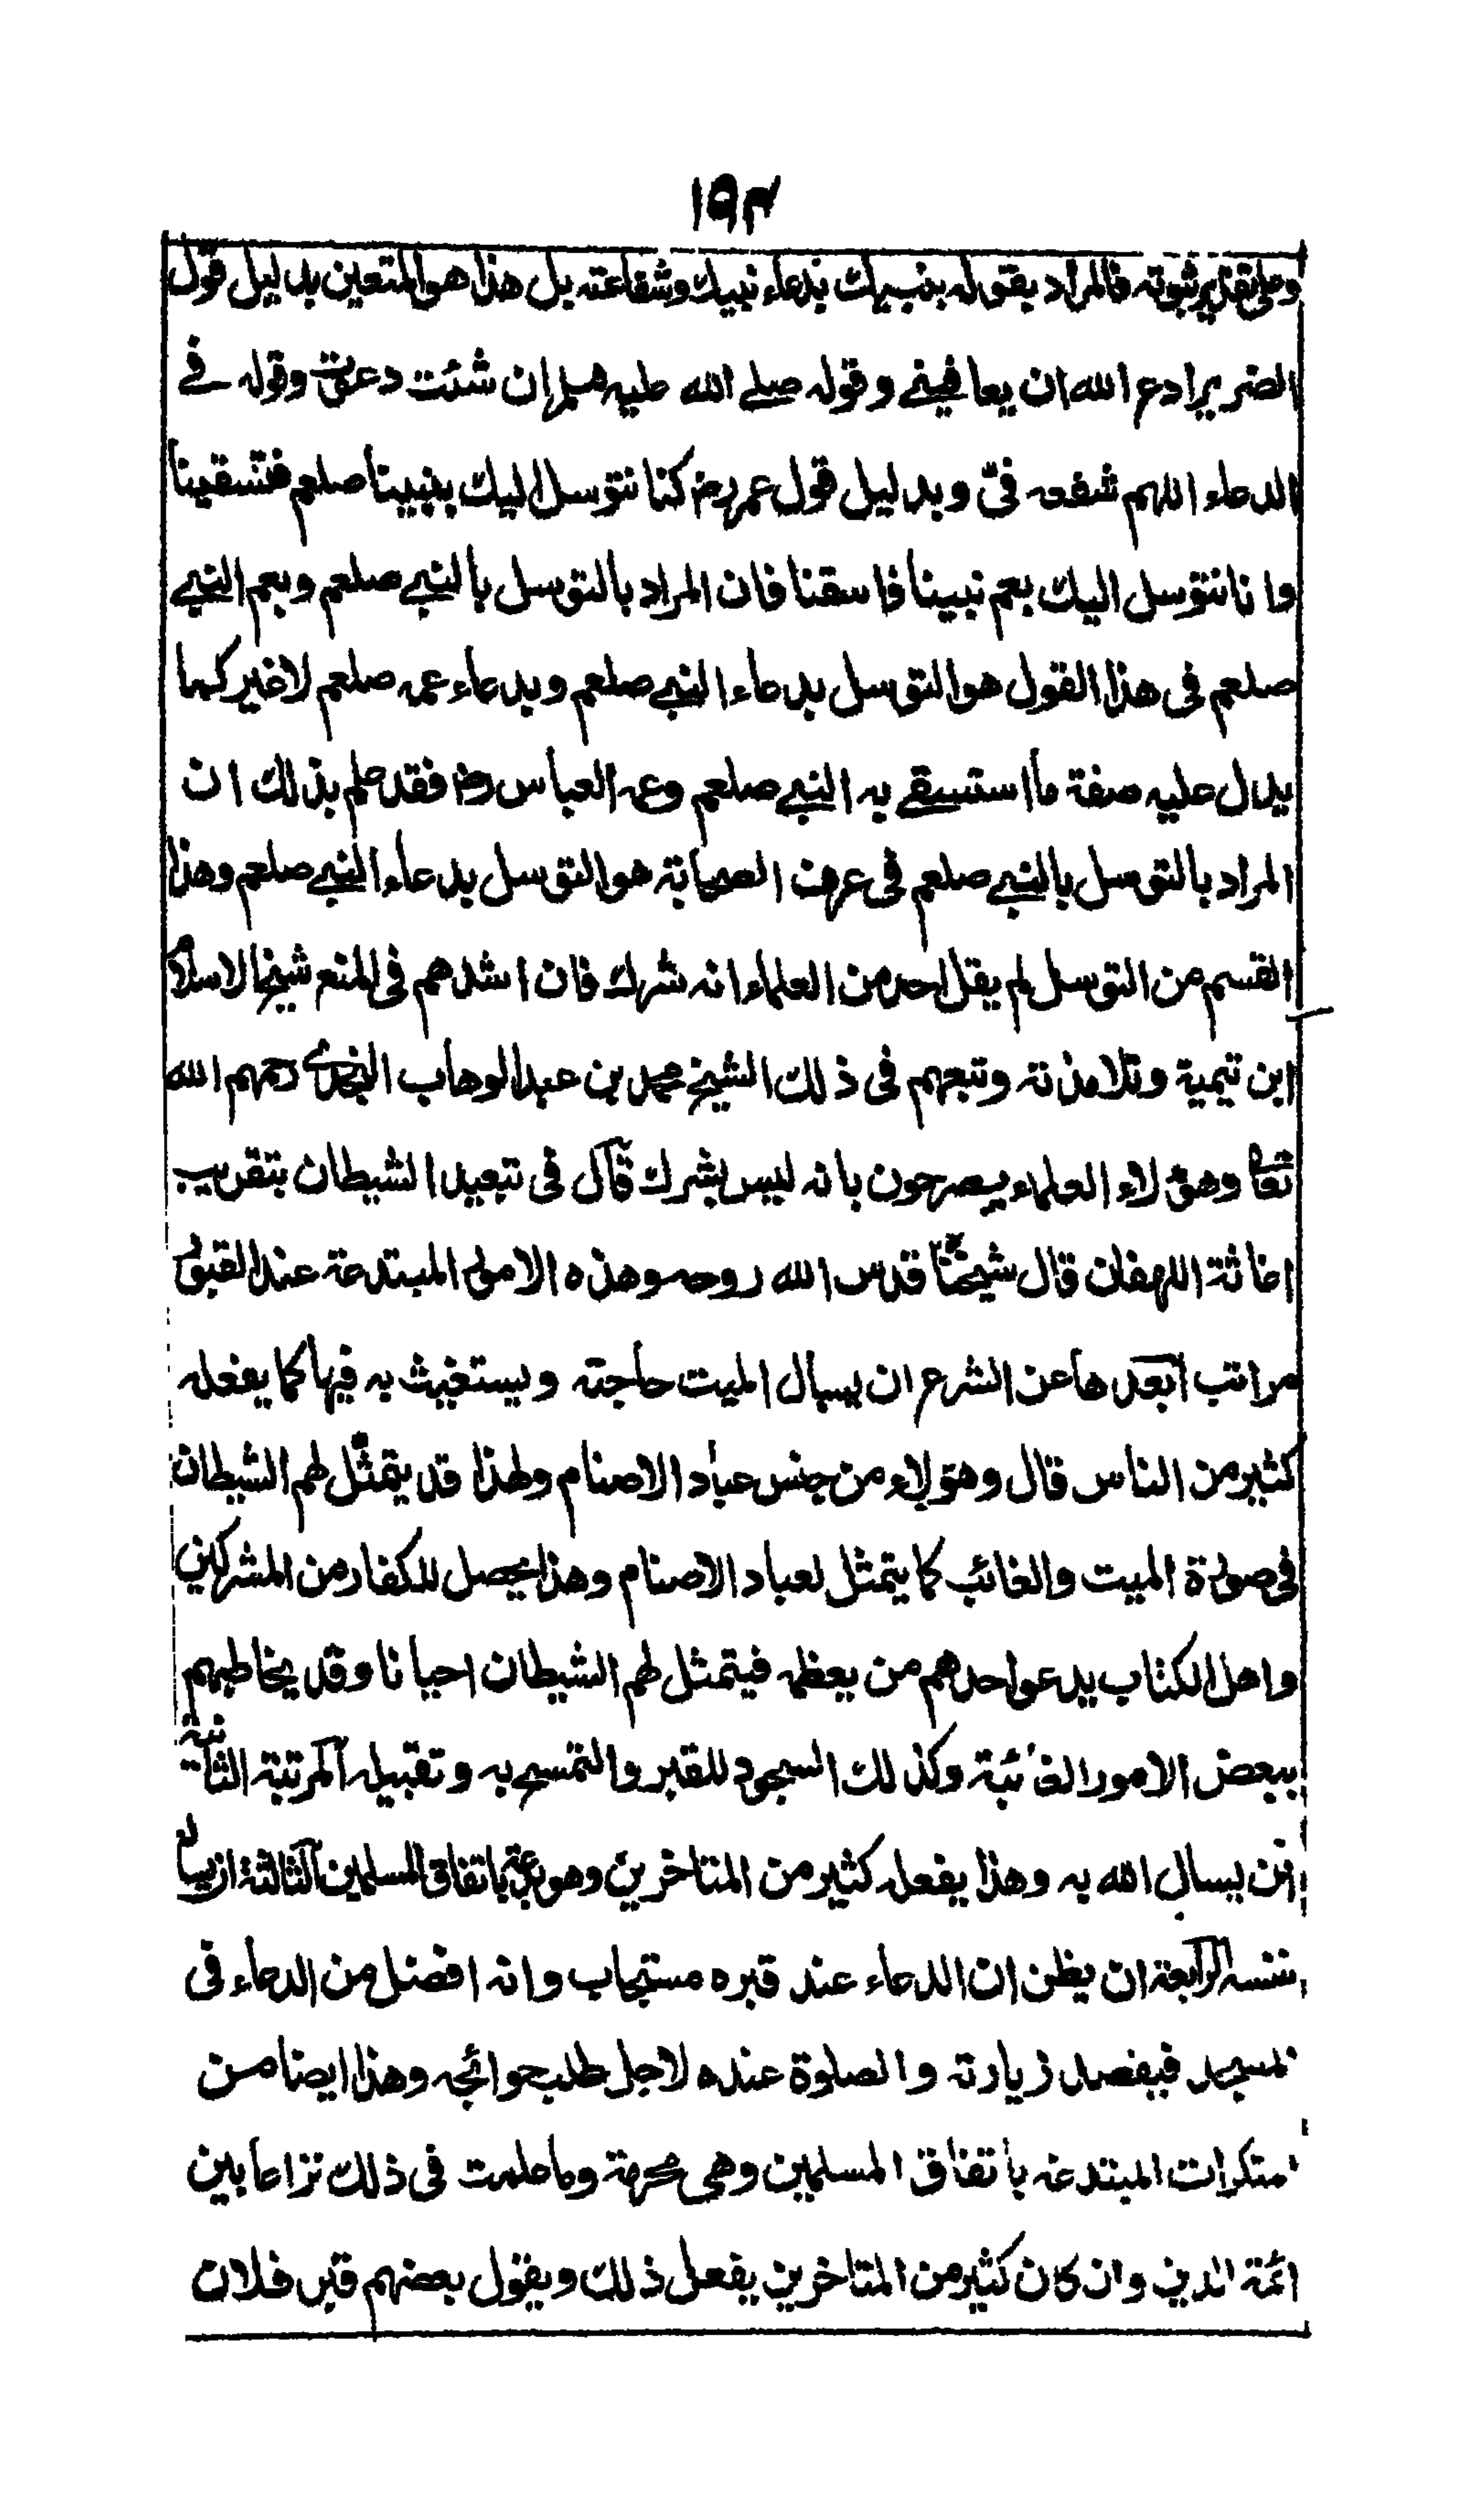 ١٩٣
وعلى تقدير ثبوته فالمراد بقوله بنبيك بدعاء نبيك وشفاعته بل هذا هو المتعين بدليل قول
الضرير ادع الله ان يعافيني وقوله صلى الله عليه وسلم ان شئت دعوت وقوله في
الدعاء اللهم شفعه فيّ وبدليل قول عمر رض كنا نتوسل اليك بنبينا صلعم فتسقينا
وانا نتوسل اليك بعم نبينا فاسقنا فان المراد بالتوسل بالنبي صلعم وبعم النبي
صلعم في هذا القول هو التوسل بدعاء النبي صلعم وبدعاء عمه صلعم لا غير كما
يدل عليه صفة ما استسقى به النبي صلعم وعمه العباس رض فقد علم بذلك ان
المراد بالتوسل بالنبي صلعم في عرف الصحابة هو التوسل بدعاء النبي صلعم وهذا
القسم من التوسل لم يقل احد من العلماء انه شرك فان اشدهم في المنع شيخ الاسلام
ابن تيمية وتلامذته وتبعهم في ذلك الشيخ محمد بن عبد الوهاب النجدي رحمهم الله
تعا وهؤلاء العلماء يصرحون بانه ليس بشرك قال في تبعيد الشيطان بتقريب
اغاثة اللهفان قال شيخنا قدس الله روحه وهذه الامور المبتدعة عند القبور
مراتب ابعدها عن الشرع ان يسال الميت حاجته ويستغيث به فيها كما يفعله
كثير من الناس قال وهؤلاء من جنس عباد الاصنام ولهذا قد يتمثل لهم الشيطان
في صورة الميت والغائب كما يتمثل لعباد الاصنام وهذا يحصل للكفار من المشركين
واهل الكتاب يدعو احدهم من يعظمه فيتمثل لهم الشيطان احيانا وقد يخاطبهم
ببعض الامور الغائبة وكذلك السجود للقبر والتمسح به وتقبيله المرتبة الثانية
ان يسال الله به وهذا يفعله كثير من المتاخرين وهو بدعة باتفاق المسلمين الثالثة ان يساله
نفسه الرابعة ان يظن ان الدعاء عند قبره مستجاب وانه افضل من الدعاء في
مسجد فيقصد زيارته والصلوة عنده لاجل طلب حوائجه وهذا ايضا من
منكرات المبتدعة باتفاق المسلمين وهي محرمة وما علمت في ذلك نزاعا بين
ائمة الدين وان كان كثير من المتاخرين يفعل ذلك ويقول بعضهم قبر فلان